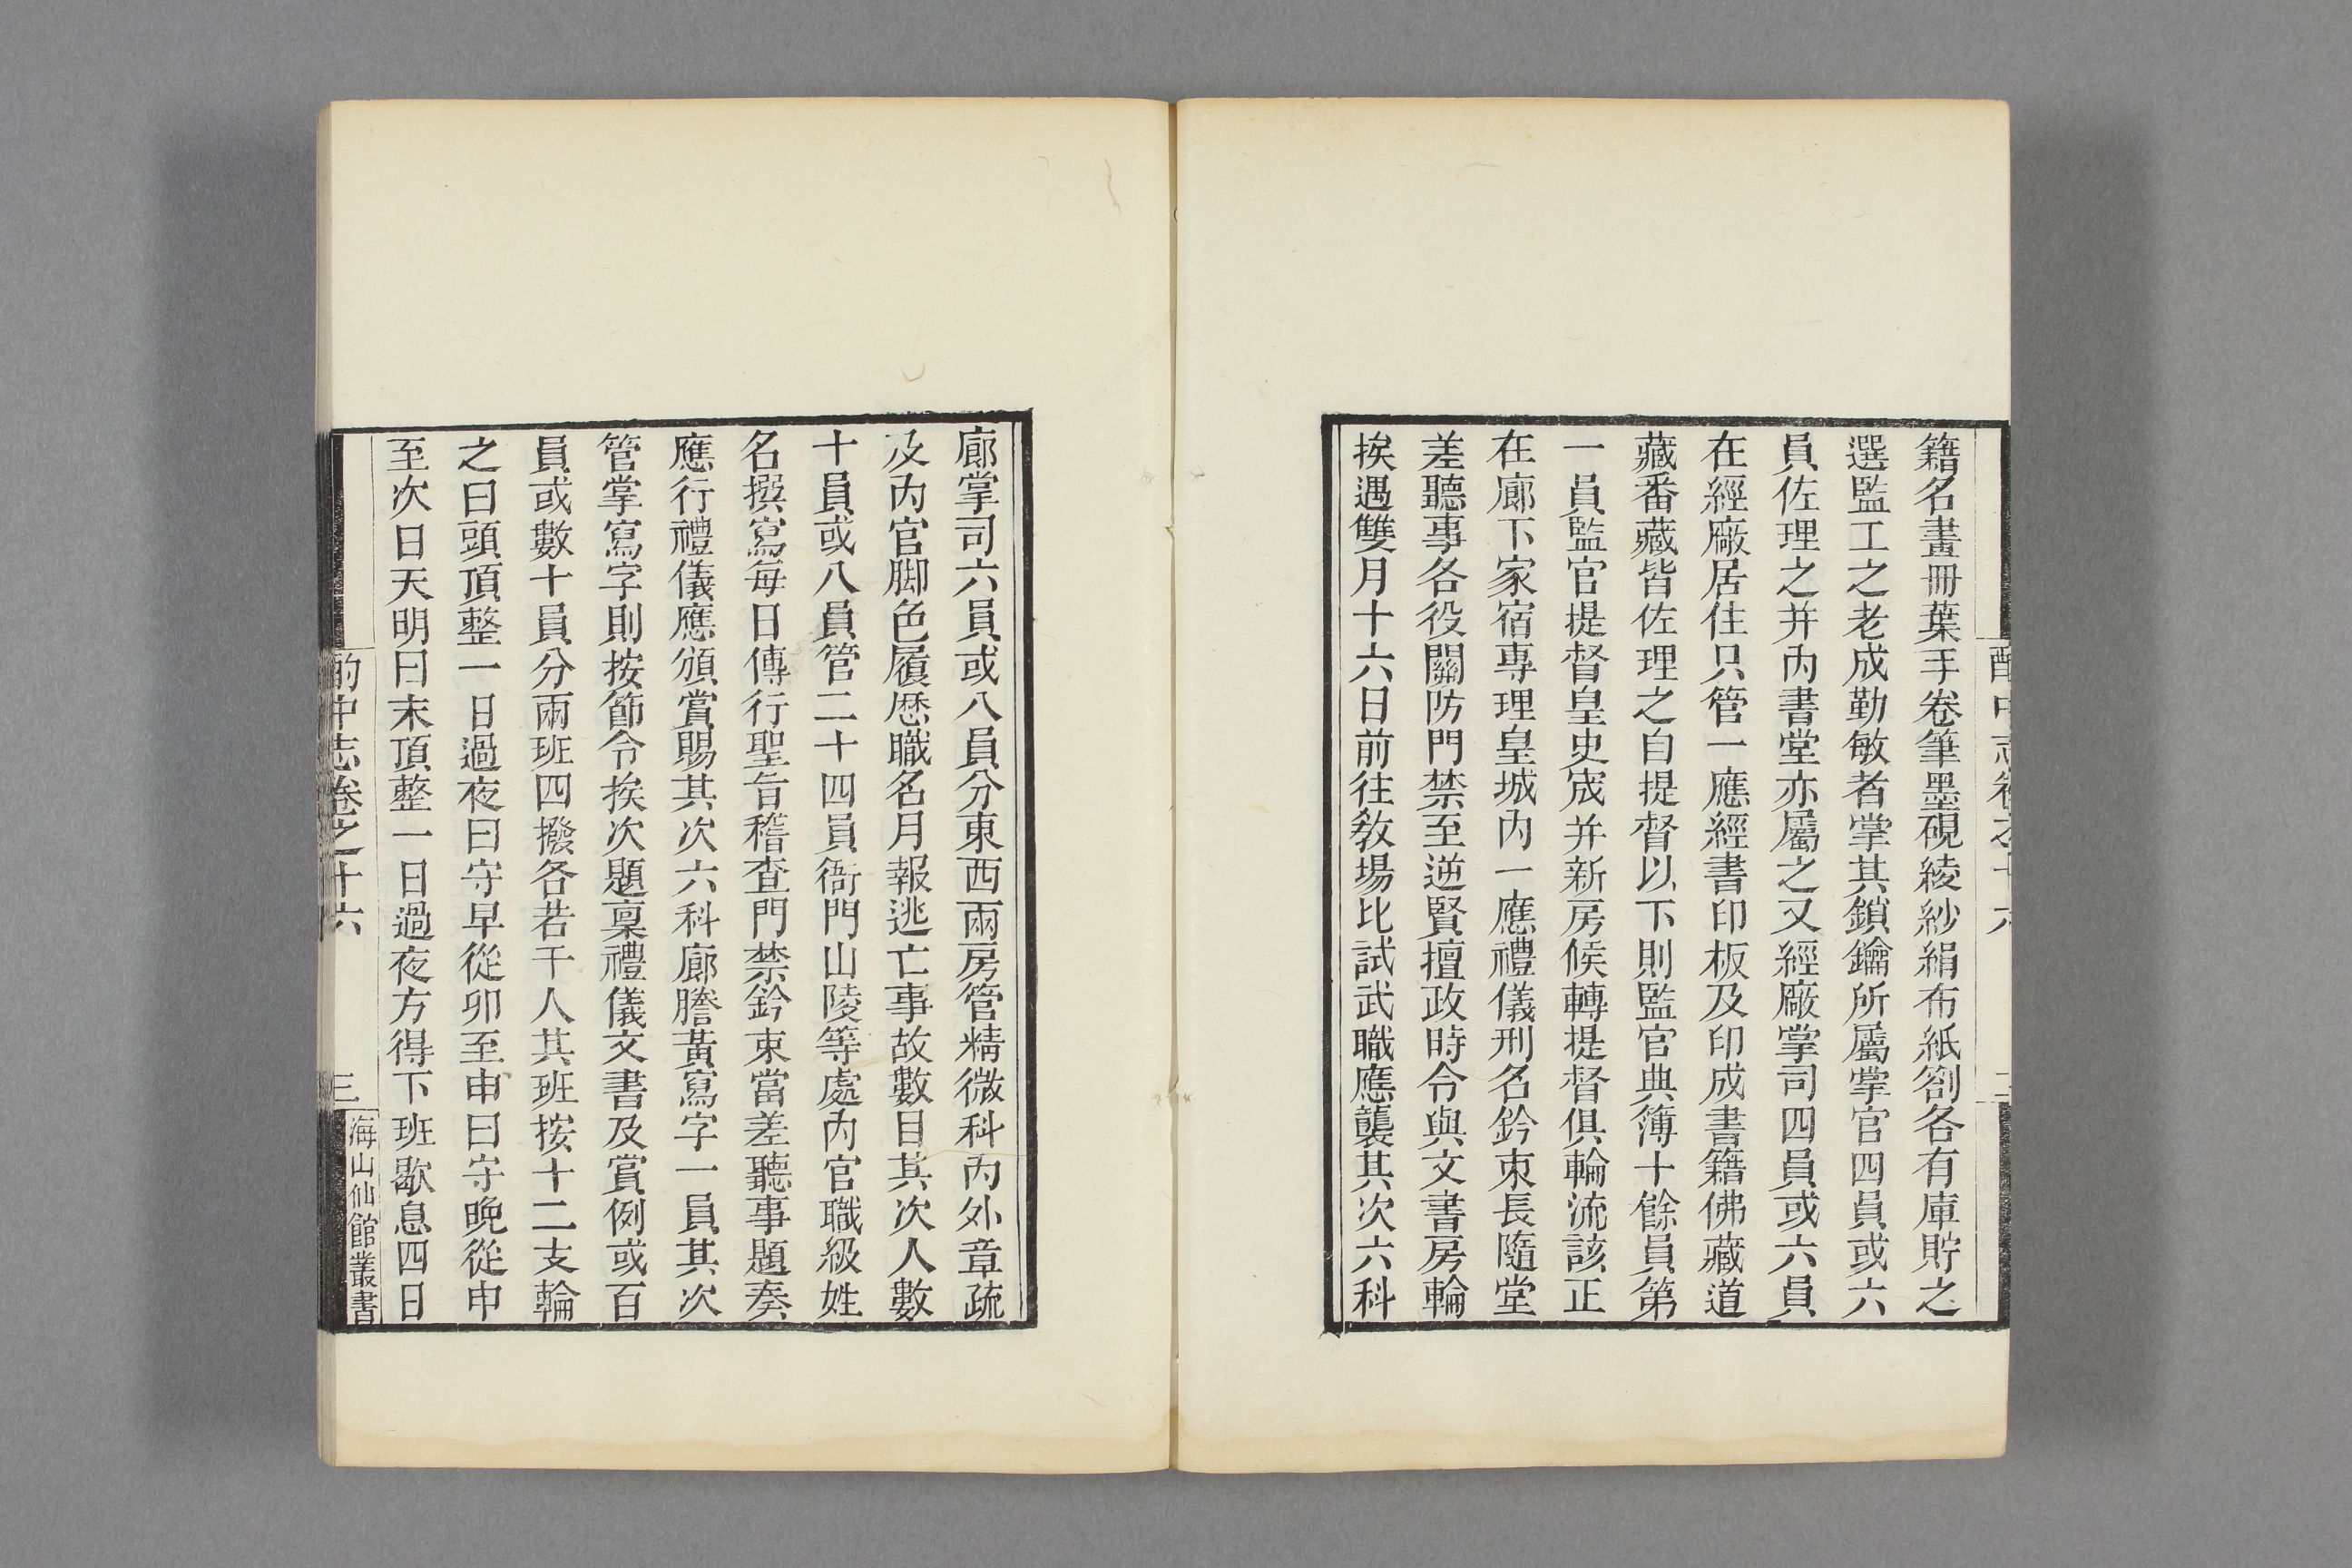 籍名畫冊葉手卷筆墨硯綾紗絹布紙劄各有庫貯之
選監工之老成勤敏者掌其鎖鑰所屬掌官四員或六
員佐理之并內書堂亦屬之又經廠掌司四員或六員
在經廠居住只管一應經書印板及印成書籍佛藏道
藏番藏皆佐理之自提督以下則監官典簿十餘員第
一員監官提督皇史宬并新房候轉提督俱輪流該正
在廊下家宿專理皇城內一應禮儀刑名鈐束長隨堂
差聽事各役關防門禁至逆賢擅政時令與文書房輪
挨遇雙月十六日前往教場比試武職應襲其次六科
廊掌司六員或八員分東西兩房管精微科內外章疏
及內官脚色履歷職名月報逃亡事故數目其次人數
十員或八員管二十四員衙門山陵等處內官職級姓
名撰寫每日傳行聖旨稽查門禁鈐束當差聽事題奏
應行禮儀應頒賞賜其次六科廊謄黃寫字一員其次
管掌寫字則按節令挨次題稟禮儀文書及賞例或百
員或數十員分兩班四撥各若干人其班按十二支輪
之曰頭頂整一日過夜曰守早從卯至申曰守晚從申
至次日天明曰末頂整一日過夜方得下班歇息四日
酌中志卷之十六
三
海山仙館叢書